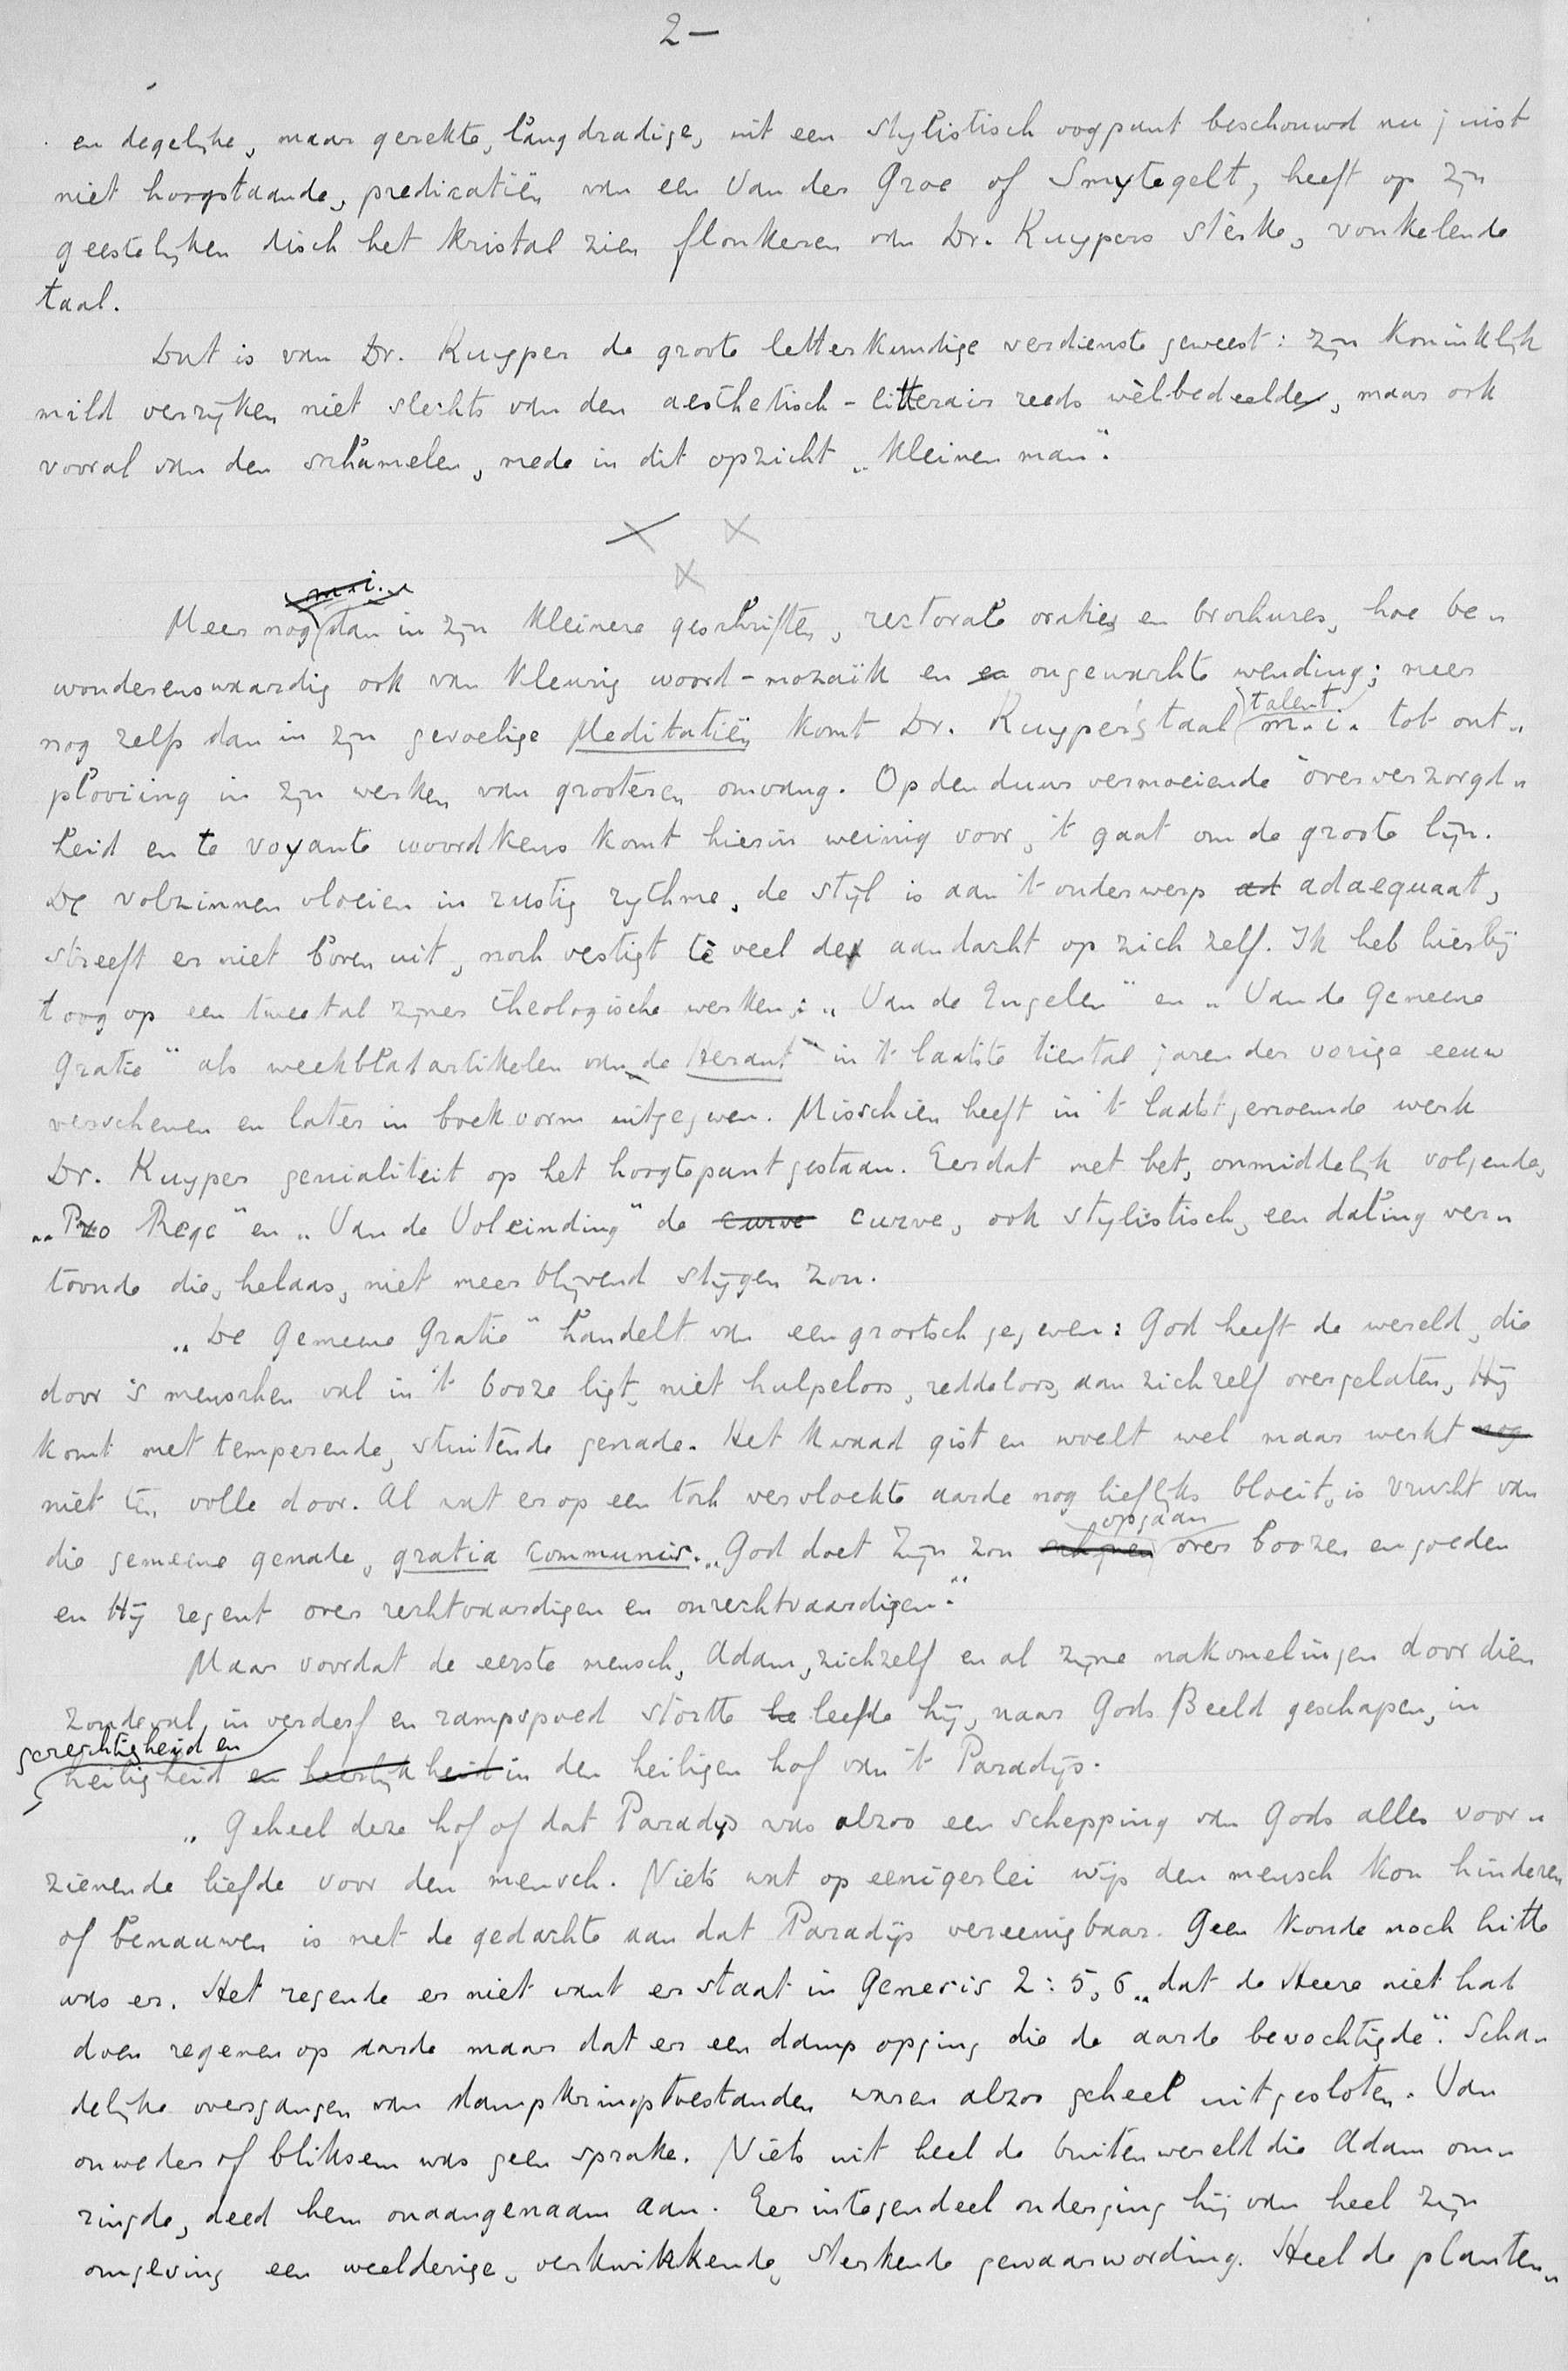 2—
en degelijke, maar gerekte, langdradige, uit een stylistisch oogpunt beschouwd nu juist
niet hoogstaande, predicatiën van een Van der Groe of Smytegelt, heeft op zijn
geestelijken disch het kristal zien flonkeren van Dr. Kuypers sterke, vonkelende
taal.
Dat is van Dr. Kuyper de groote letterkundige verdienste geweest: zijn koninklijk
mild verrijken niet slechts van den aesthetisch-litterair reeds wèl-bedeelde, maar ook
vooral van den schamelen, mede in dit opzicht „kleinen man".
x x
x
m.i.
Meer nog dan in zijn kleinere geschriften, rectorale oraties en brochures, hoe be„
wonderenswaardig ook van kleurig woord-mozaïk en en ongewachte wending; meer
talent
nog zelfs dan in zijn gevoelige Meditatiën komt Dr. Kuyper's taal m.i. tot ont„
plooiing in zijn werken van grooteren omvang. Op den duur vermoeiende oververzorgd„
heid en te voyante woordkeus komt hierin weinig voor, 't gaat om de groote lijn.
De volzinnen vloeien in rustig rythme, de stijl is aan 't onderwerp ad adaequaat,
streeft er niet boven uit, noch vestigt te veel de aandacht op zich zelf. Ik heb hierbij
't oog op een tweetal zijner theologische werken: „Van de Engelen" en „Van de Gemeene
Gratie" als weekbladartikelen van de Heraut in 't laatste tiental jaren der vorige eeuw
verschenen en later in boekvorm uitgegeven. Misschien heeft in 't laatstgenoemde werk
Dr. Kuyper genialiteit op het hoogtepunt gestaan. Eer dat met het, onmiddelijk volgende,
„Pro Rege" en „Van de Voleinding" de curve curve, ook stylistisch, een daling ver„
toonde die, helaas, niet meer blijvend stijgen zou.
„De Gemeene Gratie" handelt van een grootsch gegeven: God heeft de wereld, die
door 's menschen val in 't booze ligt, niet hulpeloos, reddeloos, aan zich zelf overgelaten, Hij
komt met temperende, stuitende genade. Het kwaad gist en woelt wel maar werkt nog
niet ten volle door. Al wat er op een toch vervloekte aarde nog lieflijks bloeit, is vrucht van
opgaan
die gemeene genade, gratia communis. „God doet Zijn zon schijnen over boozen en goeden
en Hij regent over rechtvaardigen en onrechtvaardigen."
Maar voordat de eerste mensch, Adam, zichzelf en al zijne nakomelingen door dien
zondeval, in verderf en rampspoed stortte he leefde hij, naar Gods Beeld geschapen, in
gerechtigheid en
heiligheid en heerlijkheid in den heiligen hof van 't Paradijs.
„Geheel deze hof of dat Paradijs was alzoo een schepping van Gods alles voor„
zienende liefde voor den mensch. Niets wat op eenigerlei wijs den mensch kon hinderen
of benauwen is met de gedachte aan dat Paradijs vereenigbaar. Geen koude noch hitte
was er. Het regende er niet want er staat in Genesis 2:5,6 „dat de Heere niet had
doen regenen op aarde maar dat er een damp opging die de aarde bevochtigde". Scha„
delijke overgangen van dampkringstoestanden waren alzoo geheel uitgesloten. Van
onweder of bliksem was geen sprake. Niets uit heel de buitenwereld die Adam om„
ringde, deed hem onaangenaam aan. Eer integendeel onderging hij van heel zijn
omgeving een weelderige, verkwikkende, sterkende gewaarwording. Heel de planten„